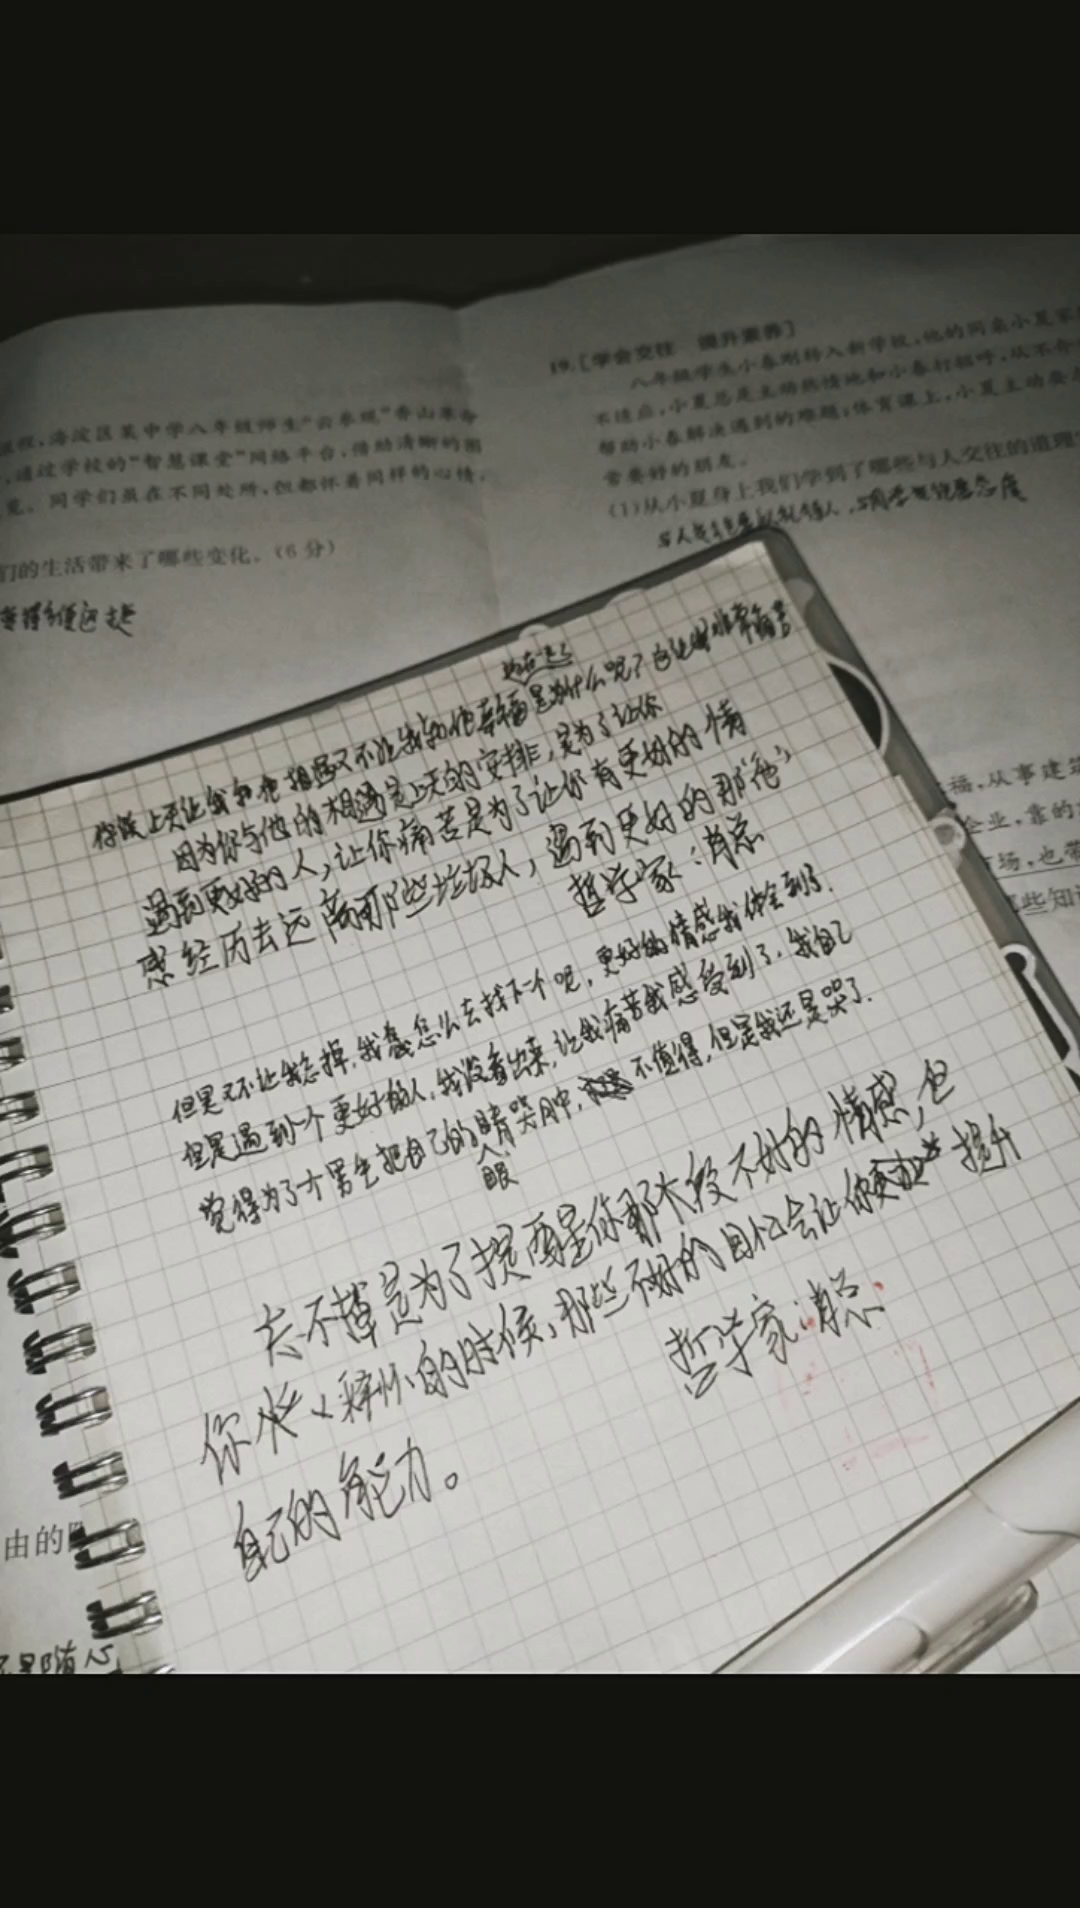 19.[学会交往 提升素养]
八年级学生小春刚转入新学校,他的同桌小夏家
不错,小夏总是主动热情地和小春打招呼,从不
帮助小春解决遇到的难题;体育课上,小夏主动
常要好的朋友。
(1)从小夏身上我们学到了哪些与人交往的道理
程,海淀区某中学八年级师生“云参观”香山革命
,通过学校的“智慧课堂”网络平台,借助清晰的图
见。同学们虽在不同处所,但都怀着同样的心情,
们的生活带来了哪些变化。(6分)
变得方便迅捷
你说上天让我和他相遇又不让我和他幸福是为什么呢?
因为你与他的相遇是上天的安排,是为了让你
遇到更好的人,让你痛苦是为了让你有更好的情
感经历去远离那些垃圾人,遇到更好的那“他”
哲学家:肖总
但是又不让我忘掉,我怎么去找下一个呢,更好的情感我体会到了.
但是遇到一个更好的人,我没看出来,让我痛苦我感受到了,我自己
觉得为了个男生把自己的眼睛哭肿,不值得,但是我还是哭了.
忘不掉是为了提醒你那大段不好的情感,
你释怀的时候,那些不好的回忆会让你提升
自己的能力。
哲学家:肖总
福,从事建筑
企业,靠的
市场,也带
哪些知识
由的
不是随心